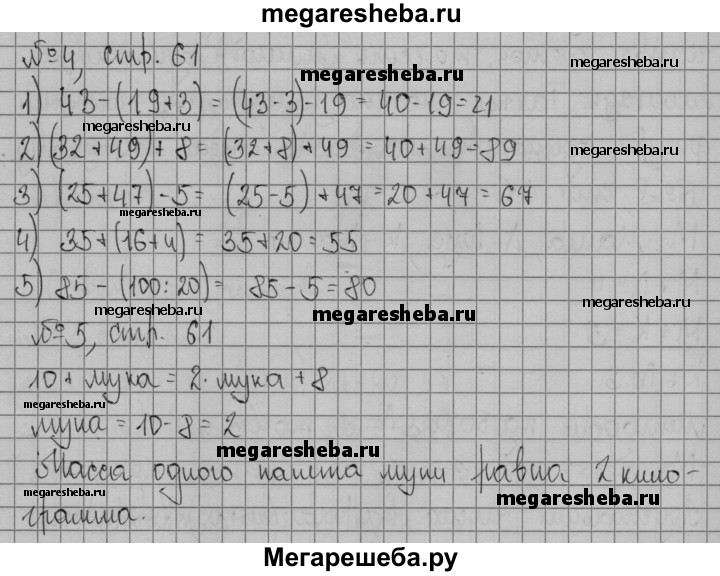 megaresheba.ru
№4, стр. 61
megaresheba.ru
megaresheba.ru
1) 43-(19+3) = (43-3)-19 = 40-19=21
megaresheba.ru
2) (32+49)+8= (32+8)+49 = 40+49=89
megaresheba.ru
3) (25+47)-5= (25-5)+47=20+47=67
megaresheba.ru
4) 35+(16+4)= 35+20=55
5) 85-(100:20)= 85-5=80
megaresheba.ru
megaresheba.ru
№5, стр. 61
10+мука=2·мука+8
megaresheba.ru
мука=10-8=2
megaresheba.ru
Масса одного пакета муки равна 2 кило-
megaresheba.ru
megaresheba.ru
грамма.
Мегарешеба.ру